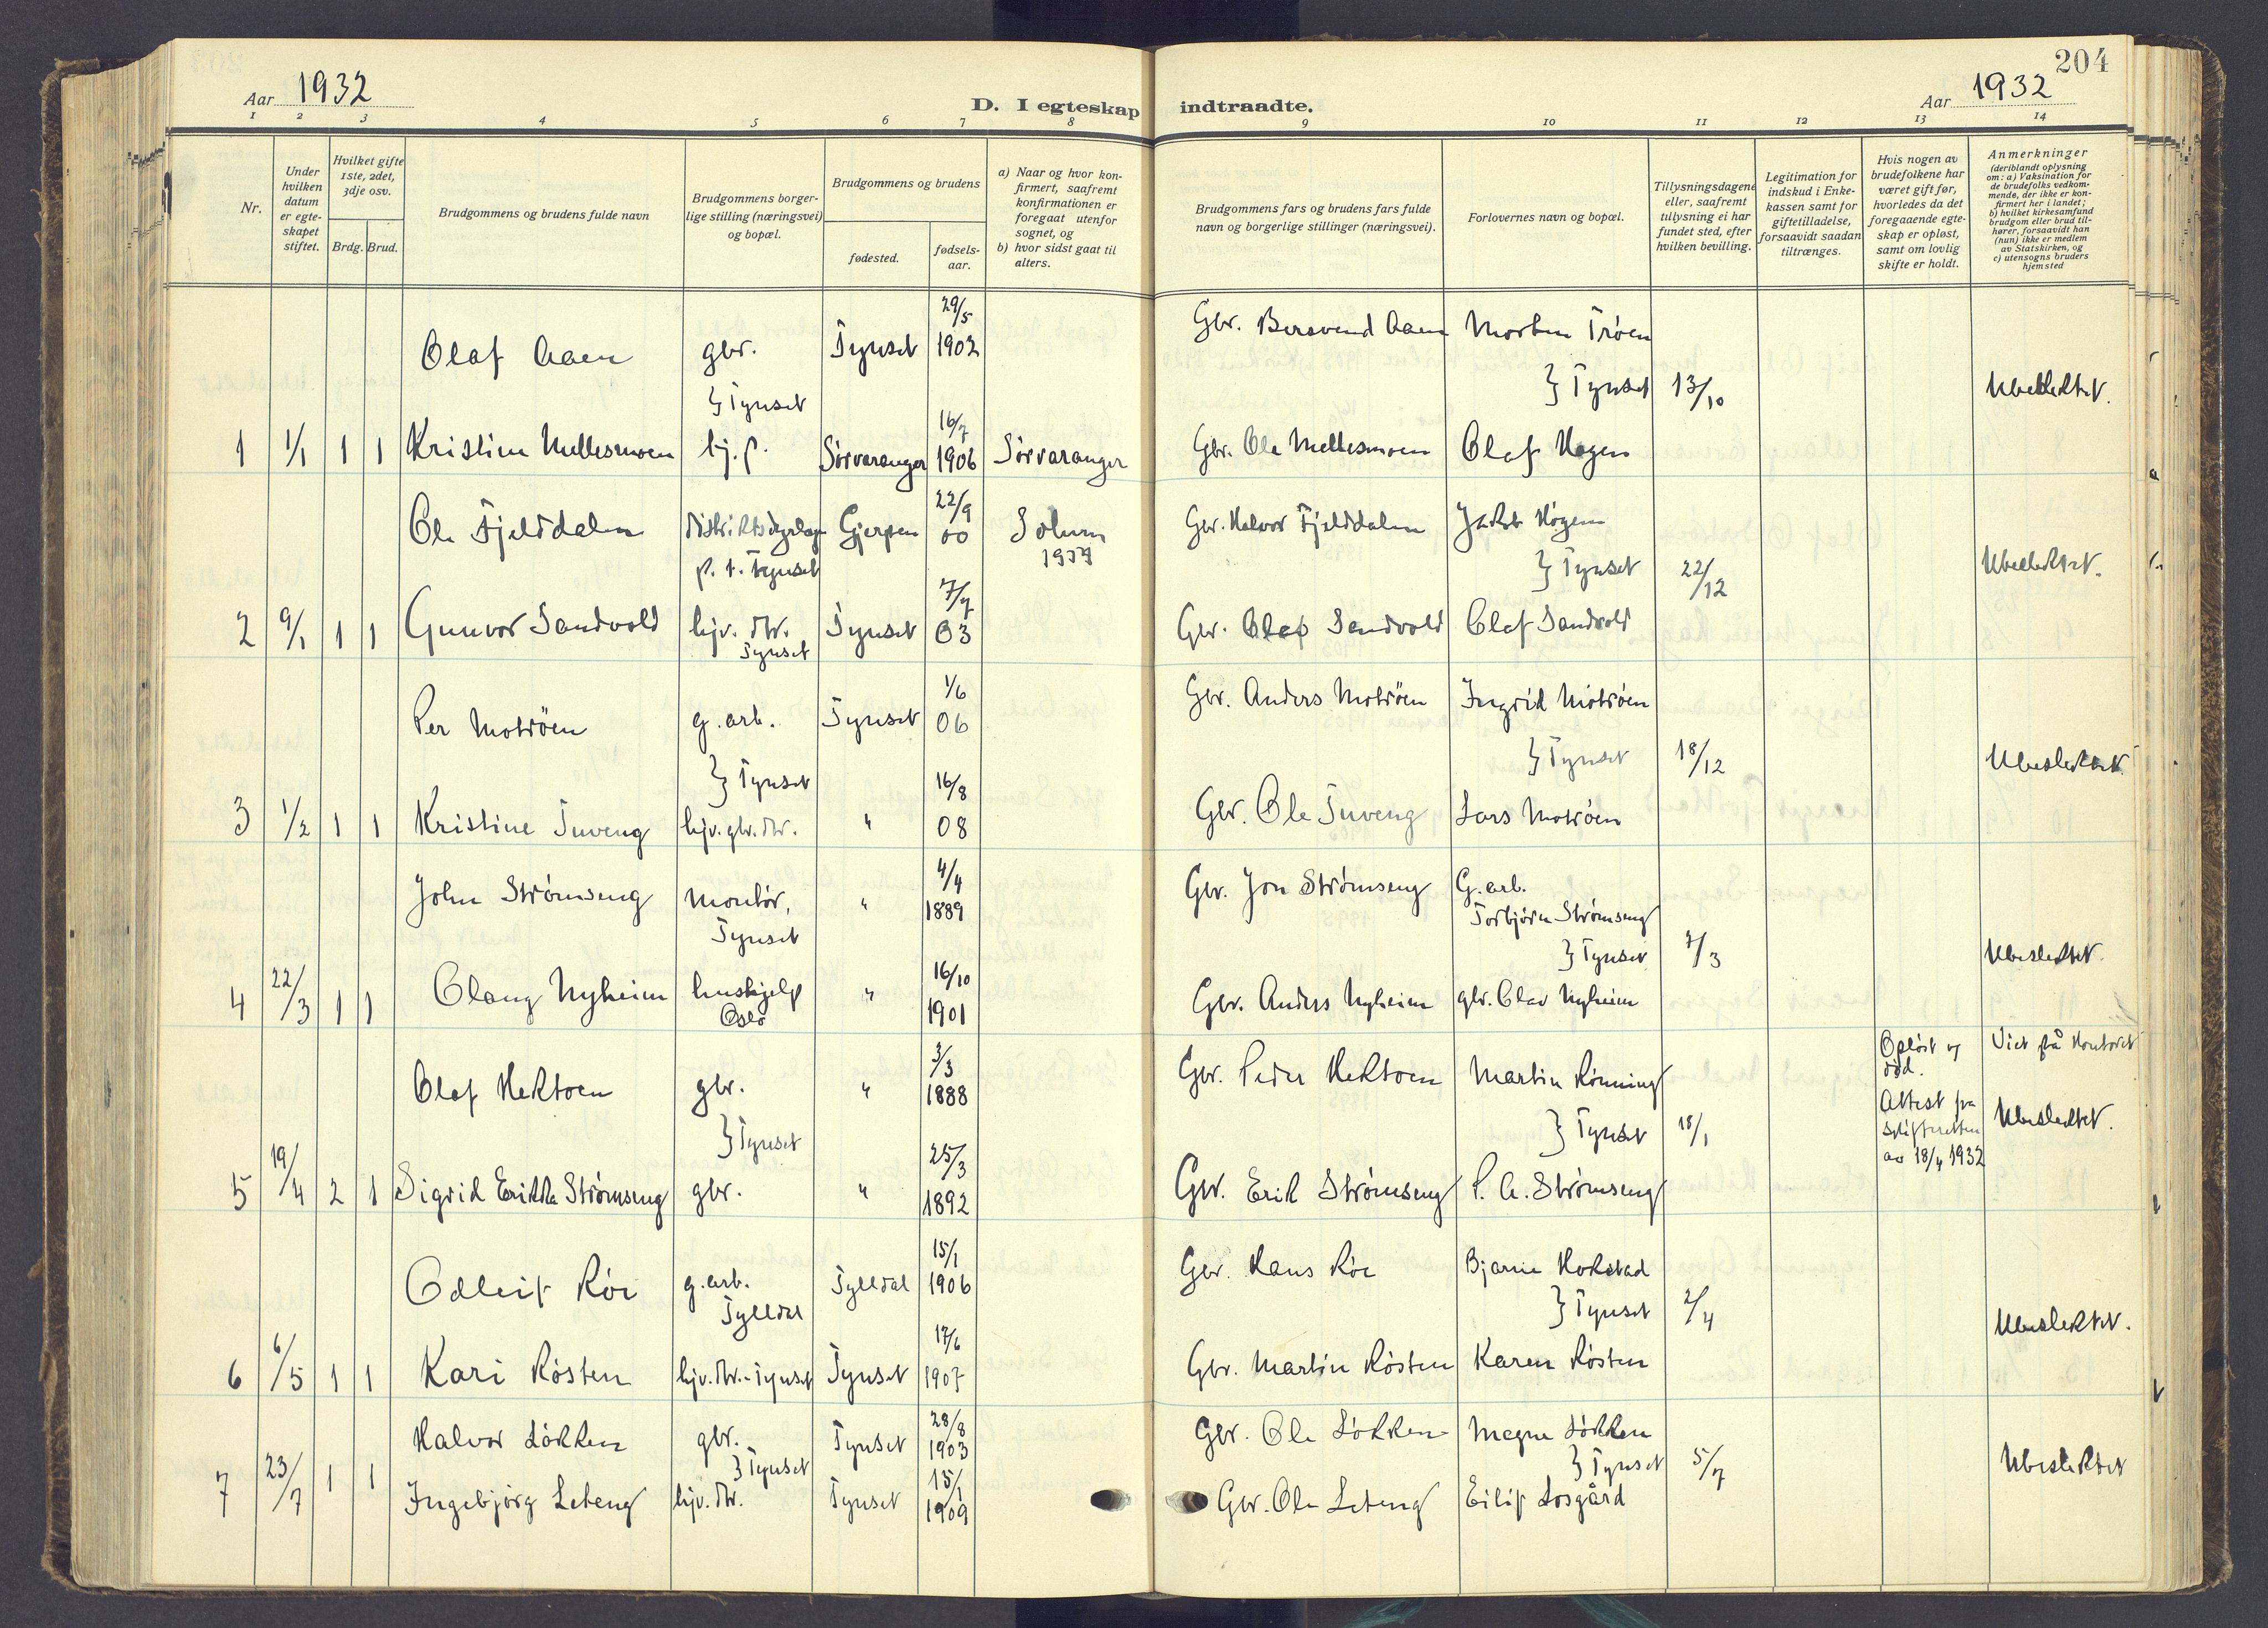 204
Aar 1932
D. I egteskap indtraadte.
Aar 1932
1 2 3 4 5 6 7 8 9 10 11 12 13 14
Nr.
Under hvilken datum er egteskapet stiftet.
Hvilket gifte 1ste, 2det, 3dje osv.
Brdg. Brud.
Brudgommens og brudens fulde navn
Brudgommens borgerlige stilling (næringsvei) og bopæl.
Brudgommens og brudens
fødested.
fødselsaar.
a) Naar og hvor konfirmert, saafremt konfirmationen er foregaat utenfor sognet, og
b) hvor sidst gaat til alters.
Brudgommens fars og brudens fars fulde navn og borgerlige stillinger (næringsvei).
Forlovernes navn og bopæl.
Tillysningsdagene eller, saafremt tillysning ei har fundet sted, efter hvilken bevilling.
Legitimation for indskud i Enkekassen samt for giftetilladelse, forsaavidt saadan tiltrænges.
Hvis nogen av brudefolkene har været gift før, hvorledes da det foregaaende egteskap er opløst, samt om lovlig skifte er holdt.
Anmerkninger (deriblandt oplysning om: a) Vaksination for de brudefolks vedkommende, der ikke er konfirmert her i landet; b) hvilket kirkesamfund brudgom eller brud tilhører, forsaavidt han (hun) ikke er medlem av Statskirken, og c) utensogns bruders hjemsted
Olaf Aaen gbr. Tynset 29/5 1902 Gbr. Bersvend Aaen Morten Trøen
} Tynset } Tynset 13/10 Ubeslektet.
1 1/1 1 1 Kristine Mellesmoen hj. p. Sørvaranger 16/7 1906 Sørvaranger Gbr. Ole Mellesmoen Olaf Hagen
Ole Fjelddalen Distriktsdyrlæge Gjerpen 22/9 00 Solum Gbr. Halvor Fjelddalen Jakob Høgem
p. t. Tynset } Tynset 22/12 Ubeslektet.
2 9/1 1 1 Gunvor Sandvold hjv. dtr. Tynset Tynset 7/7 03 Gbr. Olaf Sandvold Olaf Sandvold
Per Motrøen g. arb. Tynset 1/6 06 Gbr. Anders Motrøen Ingrid Motrøen
} Tynset } Tynset 18/12 Ubeslektet.
3 1/2 1 1 Kristine Tuveng hjv. gbr. dtr. " 16/8 08 Gbr. Ole Tuveng Lars Motrøen
John Strømseng Montør, Tynset " 4/4 1889 Gbr. Jon Strømseng G. arb. Torbjørn Strømseng
} Tynset 7/3 Ubeslektet.
4 22/3 1 1 Olaug Nyheim hushjelp Oslo " 16/10 1901 Gbr. Anders Nyheim gbr. Olav Nyheim
Olaf Hektoen gbr. " 3/3 1888 Gbr. Peder Hektoen Martin Rønning Opløst v død. Viet på kontoret
} Tynset } Tynset 18/1 Attest fra skifteretten av 18/4 1932 Ubeslektet.
5 19/4 2 1 Sigrid Erikka Strømseng gbr. " 25/3 1892 Gbr. Erik Strømseng P. A. Strømseng
Odleif Røe g. arb. Tylldal Tylldal 15/1 1906 Gbr. Hans Røe Bjarne Hokstad
} Tynset 2/4 Ubeslektet.
6 6/5 1 1 Kari Røsten hjv. dtr. - Tynset Tynset 17/6 1907 Gbr. Martin Røsten Karen Røsten
Halvor Løkken gbr. Tynset 28/8 1903 Gbr. Ole Løkken Magne Løkken
} Tynset } Tynset 5/7 Ubeslektet
7 23/7 1 1 Ingebjørg Leteng hjv. dtr. Tynset 15/1 1909 Gbr. Ole Leteng Eilif Losgård